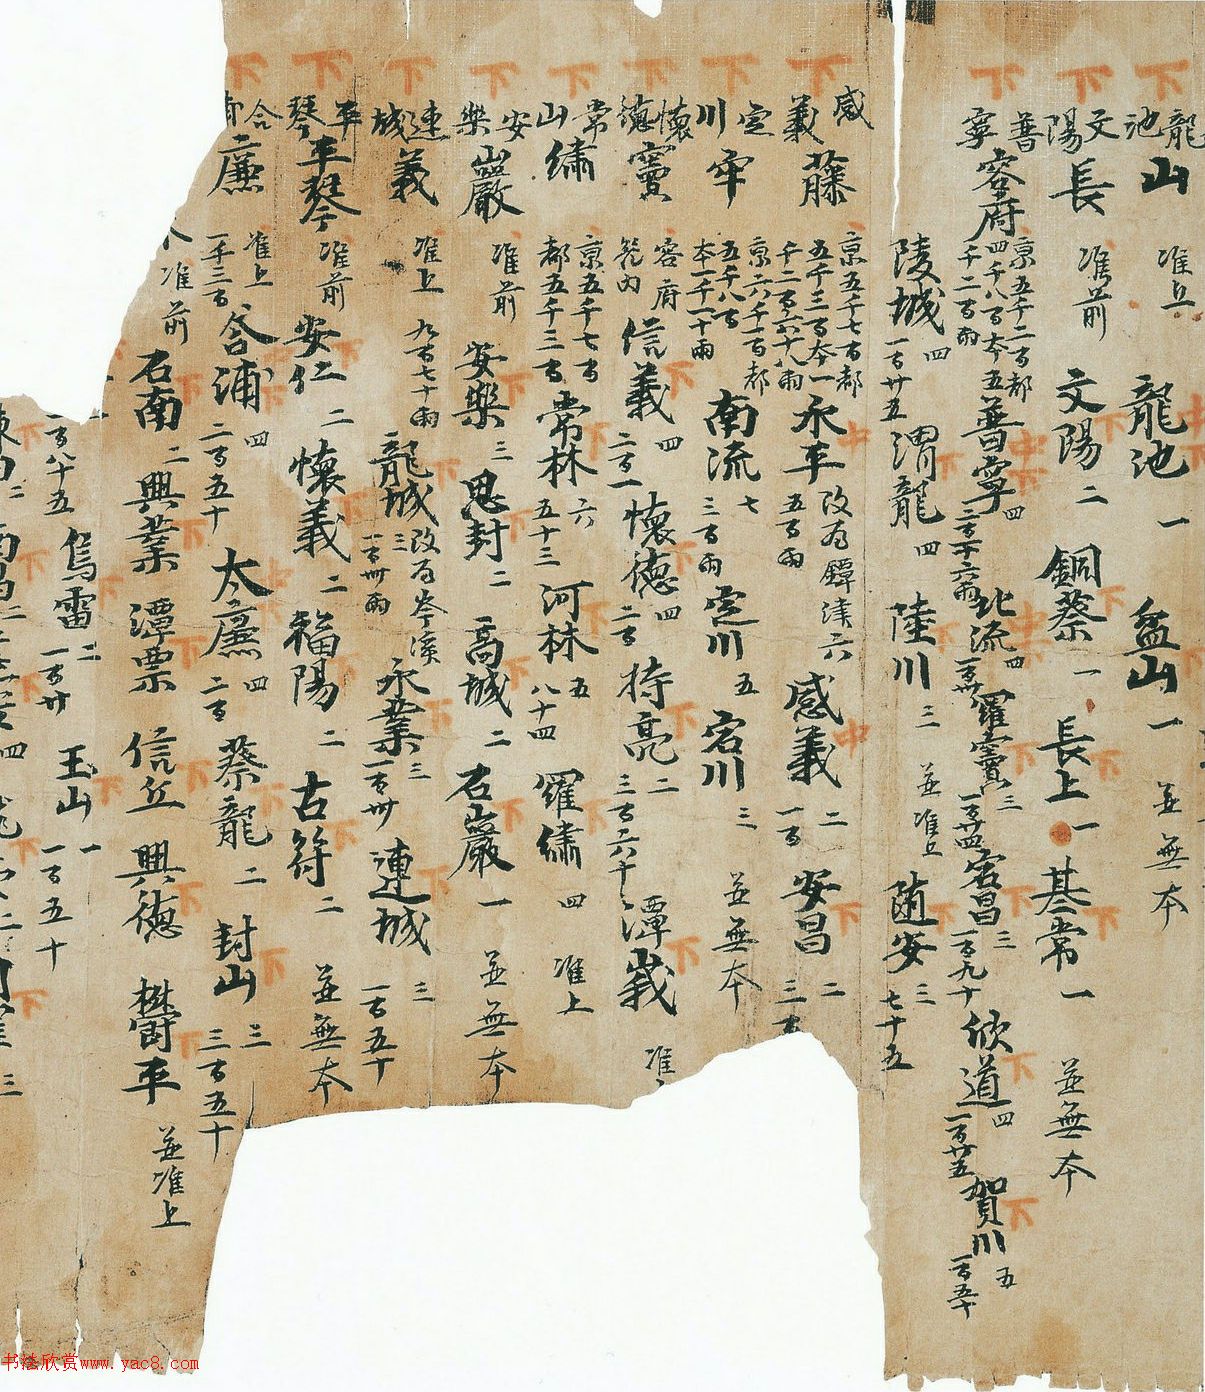 下 龍池 山 准上 龍池 一 盆山 一 並無本
下 文陽 長 准前 文陽 二 銅蔡 一 長上 一 基常 一 並無本
下 普寧 容府 京五千二百都四千八百本五千二百兩 普寧 四 北流 四 羅竇 三 一百廿四 宕昌 三 一百九十 欣道 四 一百廿五 賀川 五 一百五十
陵城 四 一百廿五 渭龍 四 陸川 三 並准上 隨安 三 七十五
下 感義 藤 京五千七百都五千三百本一千二百六十九兩 永平 改為鐔津 六 五百兩 感義 二 一百 安昌 二 三百
下 定川 牢 京六千一百都五千八百本一千一十兩 南流 七 三百兩 定川 五 宕川 三 並無本
下 懷德 竇 容府管內 信義 四 二百一 懷德 四 二百 特亮 二 三百六十 潭峩 准
下 常山 繡 京五千七百都五千三百 常林 六 五十三 河林 五 八十四 羅繡 四 准上
下 安樂 巖 准前 安樂 三 思封 二 高城 二 石巖 一 並無本
下 連城 義 准上 九百七十兩 龍城 三 改為岑溪 一百卅兩 永業 三 一百卅 連城 三 一百五十
下 平琴 平琴 准前 安仁 二 懷義 二 福陽 二 古符 二 並無本
下 合 廉 准上 一千二百 合浦 四 二百五十 大廉 四 二百 蔡龍 二 封山 三 三百五十
准前 石南 二 興業 潭栗 信丘 興德 欝平 並准上
一百八十五 烏雷 二 一百廿 玉山 一 一百五十
书法欣赏www.yac8.com